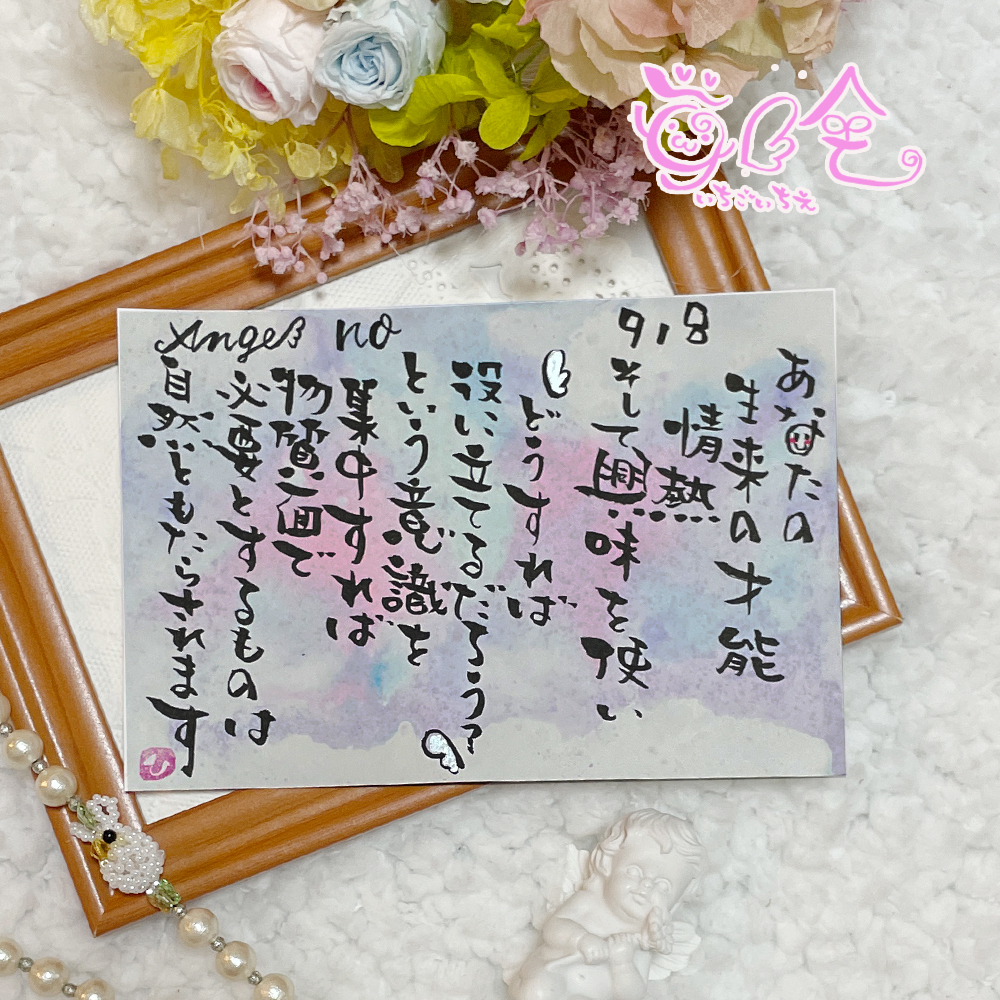 918
Angel no
あなたの
生来の才能
情熱
そして興味を使い
どうすれば
役に立てるだろう?
という意識を
集中すれば
物質面で
必要とするものは
自然ともたらされます
いちごいちえ